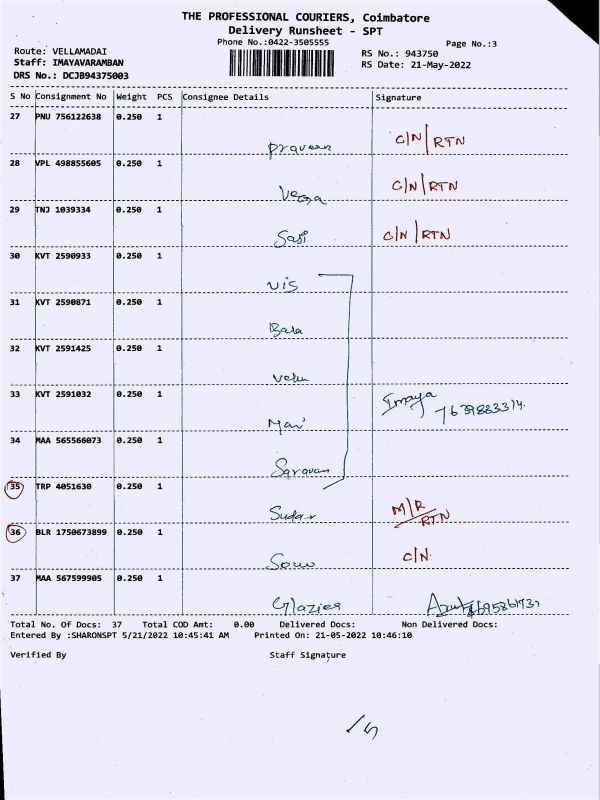 THE PROFESSIONAL COURIERS, Coimbatore
Delivery Runsheet - SPT
Phone No.:0422-3505555
Page No.:3
Route: VELLAMADAI
RS No.: 943750
Staff: IMAYAVARAMBAN
RS Date: 21-May-2022
DRS No.: DCJB94375003
S No Consignment No Weight PCS Consignee Details Signature
27 PNU 756122638 0.250 1
Praveen C/N/RTN
28 VPL 498855605 0.250 1
C/N/RTN
29 TNJ 1039334 0.250 1
Sasi C/N/RTN
30 KVT 2590933 0.250 1
Vis
31 KVT 2590871 0.250 1
Bala
32 KVT 2591425 0.250 1
Velu
33 KVT 2591032 0.250 1
Mari Imaya
34 MAA 565566073 0.250 1
Saravan
35 TRP 4051630 0.250 1
Sudar M/R RTN
36 BLR 1750673899 0.250 1
C/N
37 MAA 567599905 0.250 1
Glazier
Total No. Of Docs: 37 Total COD Amt: 0.00 Delivered Docs: Non Delivered Docs:
Entered By :SHARONSPT 5/21/2022 10:45:41 AM Printed On: 21-05-2022 10:46:10
Verified By Staff Signature